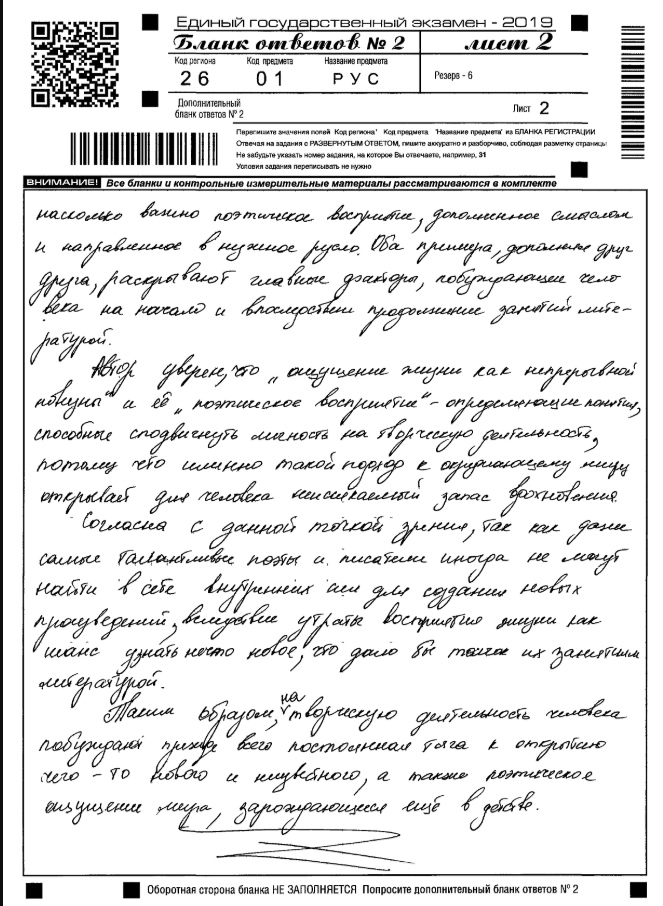 Единый государственный экзамен - 2019
Бланк ответов № 2 лист 2
Код региона Код предмета Название предмета
26 01 РУС Резерв - 6
Дополнительный
бланк ответов № 2 Лист 2
Перепишите значения полей "Код региона" "Код предмета" "Название предмета" из БЛАНКА РЕГИСТРАЦИИ
Отвечая на задания с РАЗВЕРНУТЫМ ОТВЕТОМ, пишите аккуратно и разборчиво, соблюдая разметку страницы
Не забудьте указать номер задания, на которое Вы отвечаете, например, 31
Условия задания переписывать не нужно
ВНИМАНИЕ! Все бланки и контрольные измерительные материалы рассматриваются в комплекте
насколько важно поэтическое восприятие, дополненное смыслом
и направленное в нужное русло. Оба примера, дополняя друг
друга, раскрывают главные факторы, побуждающие чело
века на начало и впоследствии продолжение занятий лите-
ратурой.
Автор уверен, что „ощущение жизни как непрерывной
новизны" и её „поэтическое восприятие" - определяющие понятия,
способные сподвигнуть личность на творческую деятельность,
потому что именно такой подход к окружающему миру
открывает для человека неиссякаемый запас вдохновения
Согласна с данной точкой зрения, так как даже
самые талантливые поэты и писатели иногда не могут
найти в себе внутренних сил для создания новых
произведений, вследствие утраты восприятия жизни как
шанс узнать нечто новое, что дало бы толчок их занятиям
литературой.
Таким образом, на творческую деятельность человека
побуждают прежде всего постоянная тяга к открытию
чего - то нового и неизвестного, а также поэтическое
ощущение мира, зарождающееся ещё в детстве.
Оборотная сторона бланка НЕ ЗАПОЛНЯЕТСЯ Попросите дополнительный бланк ответов № 2